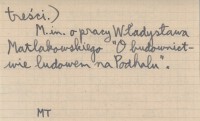 treści.)
M.in. o pracy Władysława
Matlakowskiego "O budownict-
wie ludowem na Podhalu".
MT